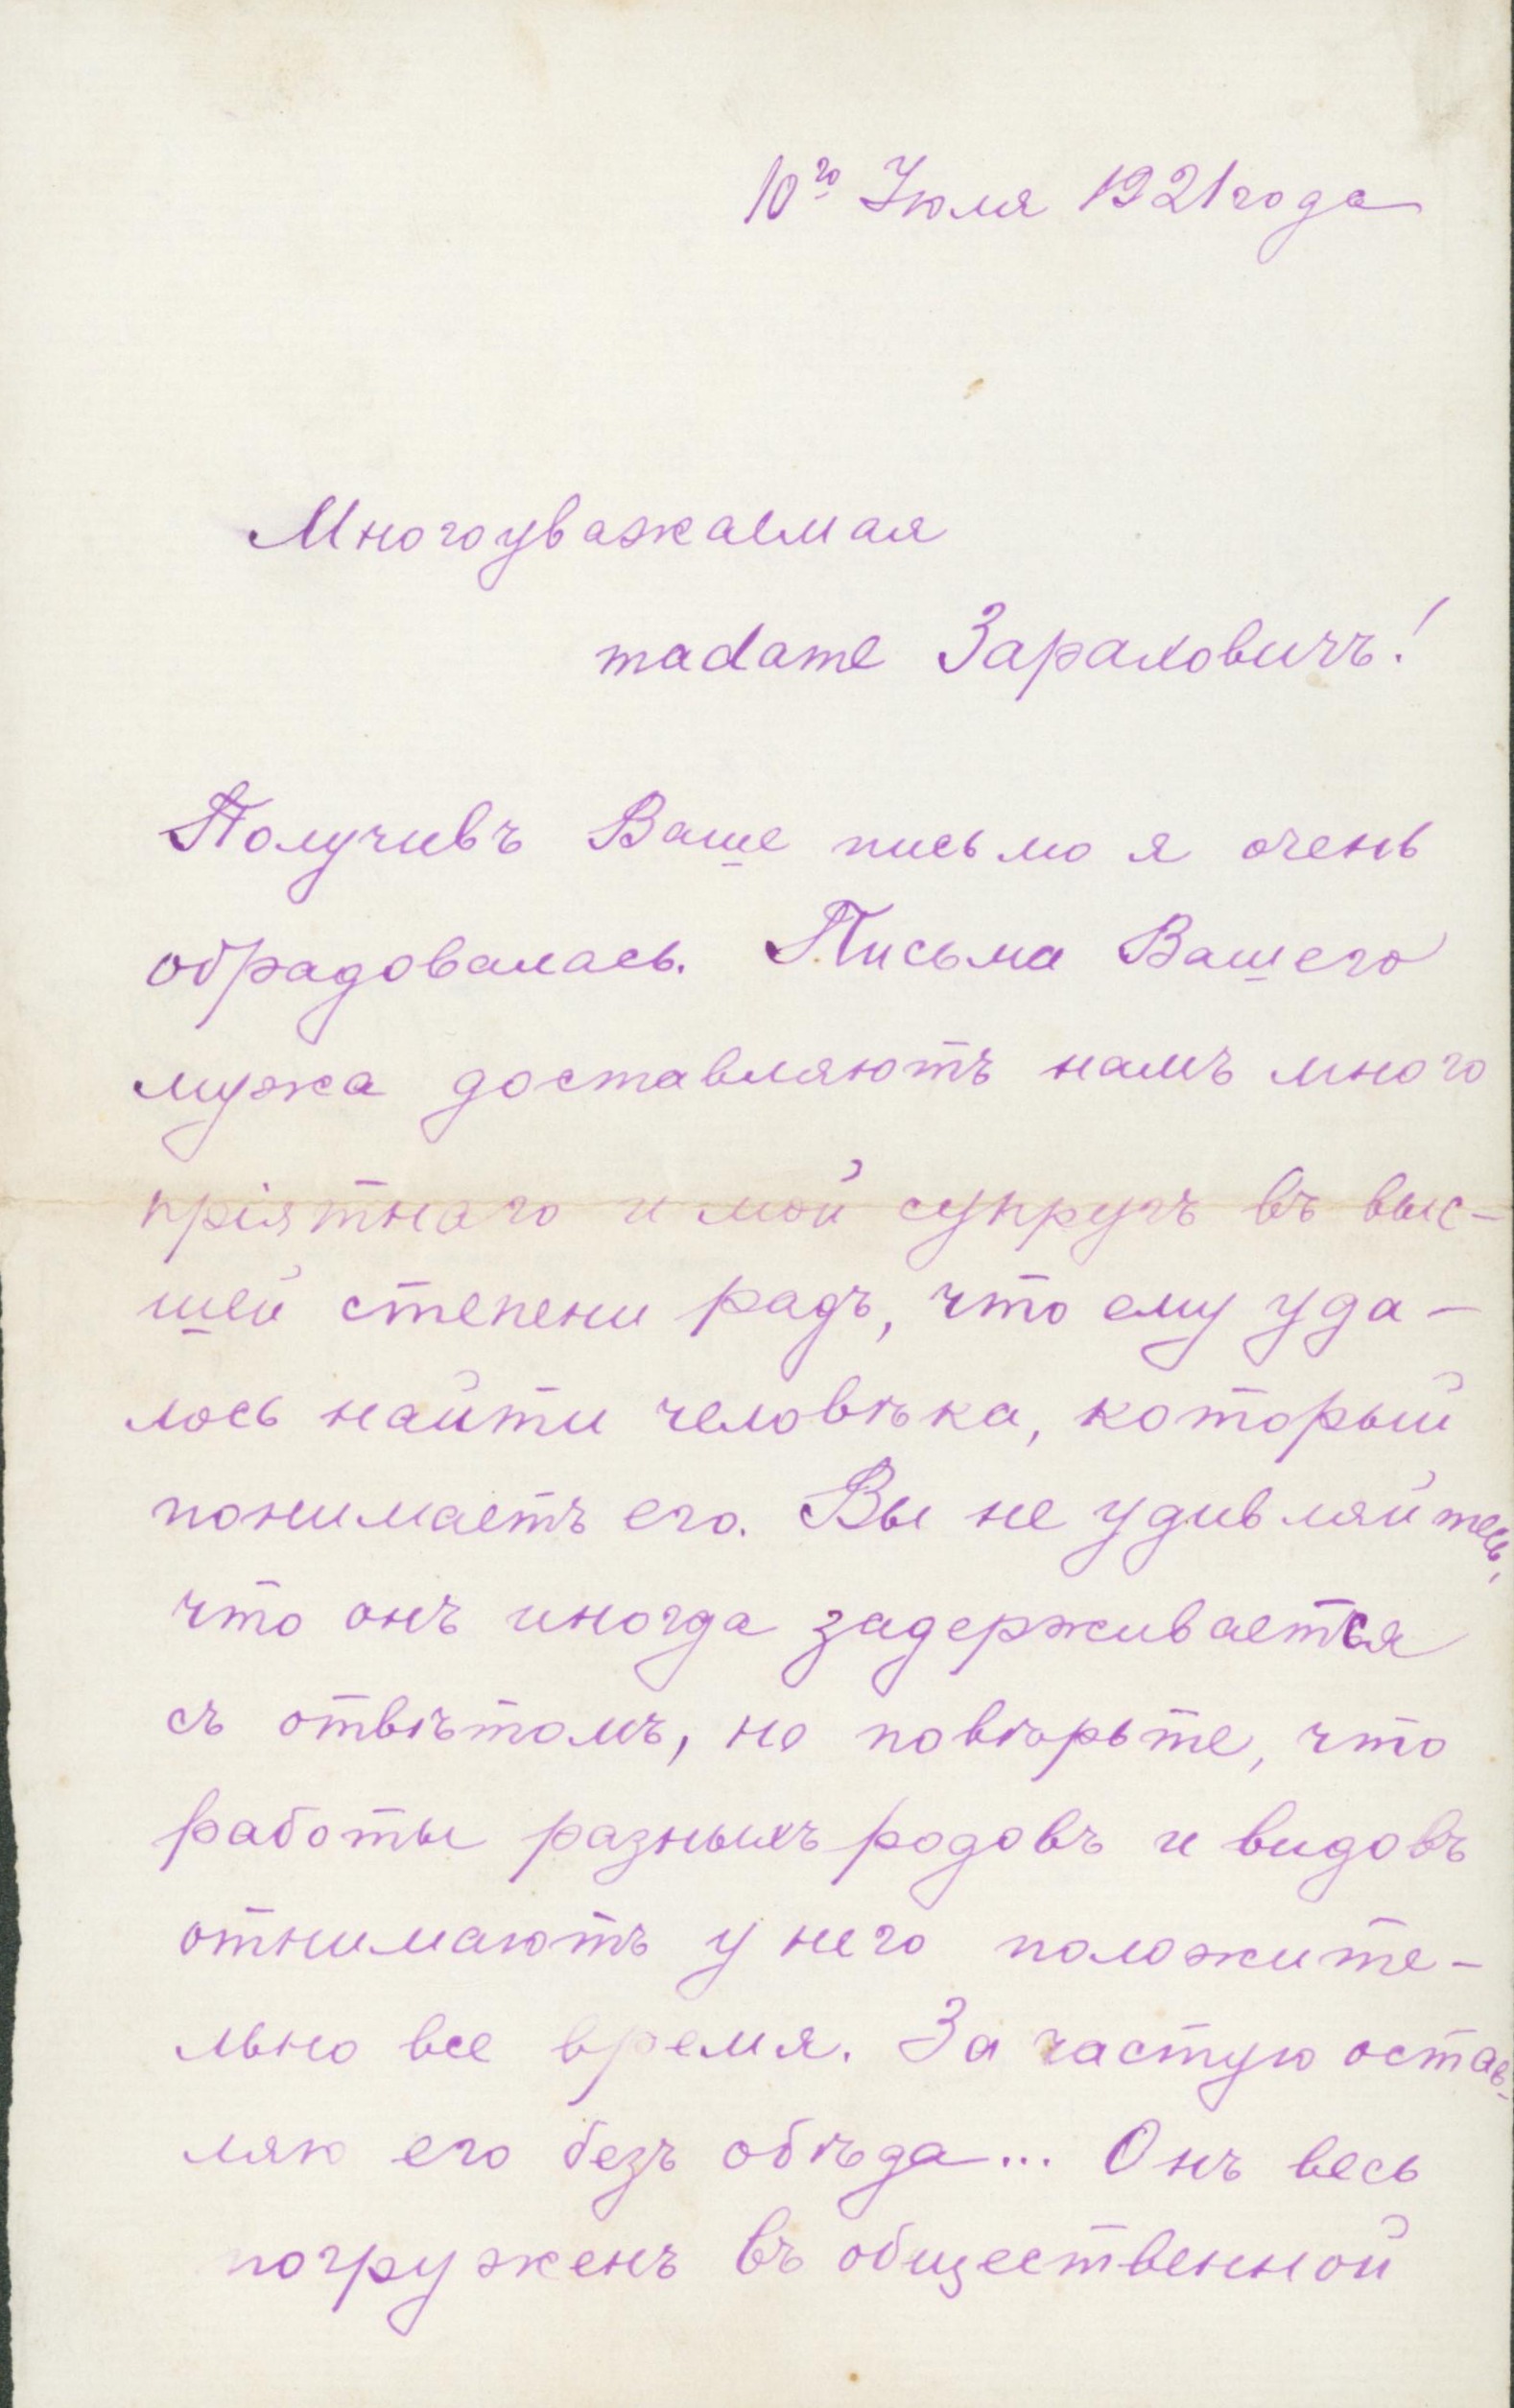 10го Июля 1921 года
Многоуважаемая
madame Зараховичъ!
Получивъ Ваше письмо я очень
обрадовалась. Письма Вашего
мужа доставляютъ намъ много
пріятнаго и мой супругъ въ выс-
шей степени радъ, что ему уда-
лось найти человѣка, который
понимаетъ его. Вы не удивляйтесь,
что онъ иногда задерживается
съ отвѣтомъ, но повѣрьте, что
работы разныхъ родовъ и видовъ
отнимаютъ у него положите-
льно все время. За частую остав-
ляю его безъ обѣда... Онъ весь
погруженъ въ общественной